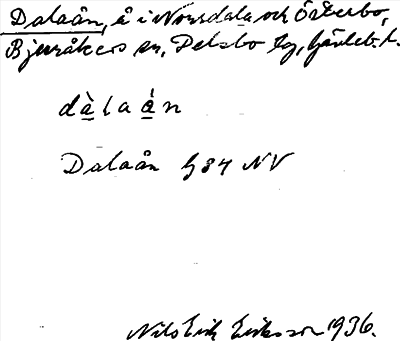 Dalaån, å i Norrdala och Österbo,
Bjuråkers sn, Delsbo tg, Gävleb. l.
dàlaán
Dalaån G34 NV
Nils Erik Eriksson 1936.